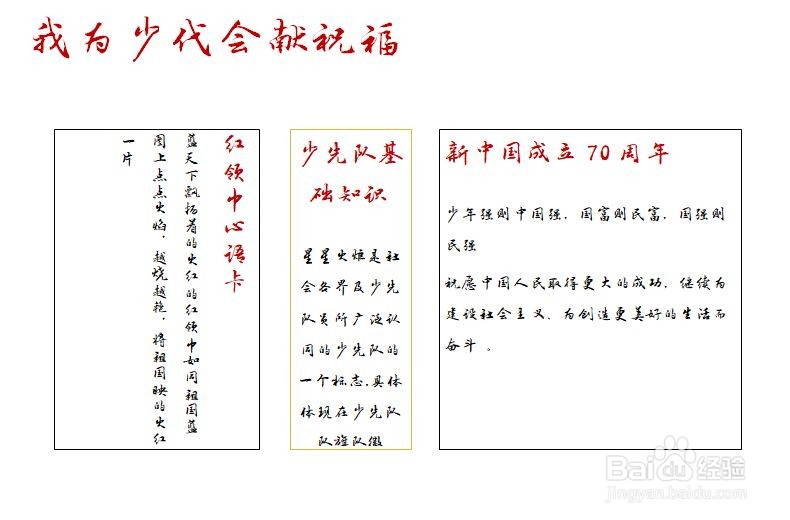 我为少代会献祝福
红领巾心语卡
蓝天下飘扬着的火红的红领巾如同祖国蓝
图上点点火焰，越烧越艳，将祖国映的火红
一片
少先队基
础知识
星星火炬是社
会各界及少先
队员所广泛认
同的少先队的
一个标志，具体
体现在少先队
队旗队徽
新中国成立70周年
少年强则中国强，国富则民富，国强则
民强
祝愿中国人民取得更大的成功，继续为
建设社会主义、为创造更美好的生活而
奋斗。
Baidu经验
jingyan.baidu.com